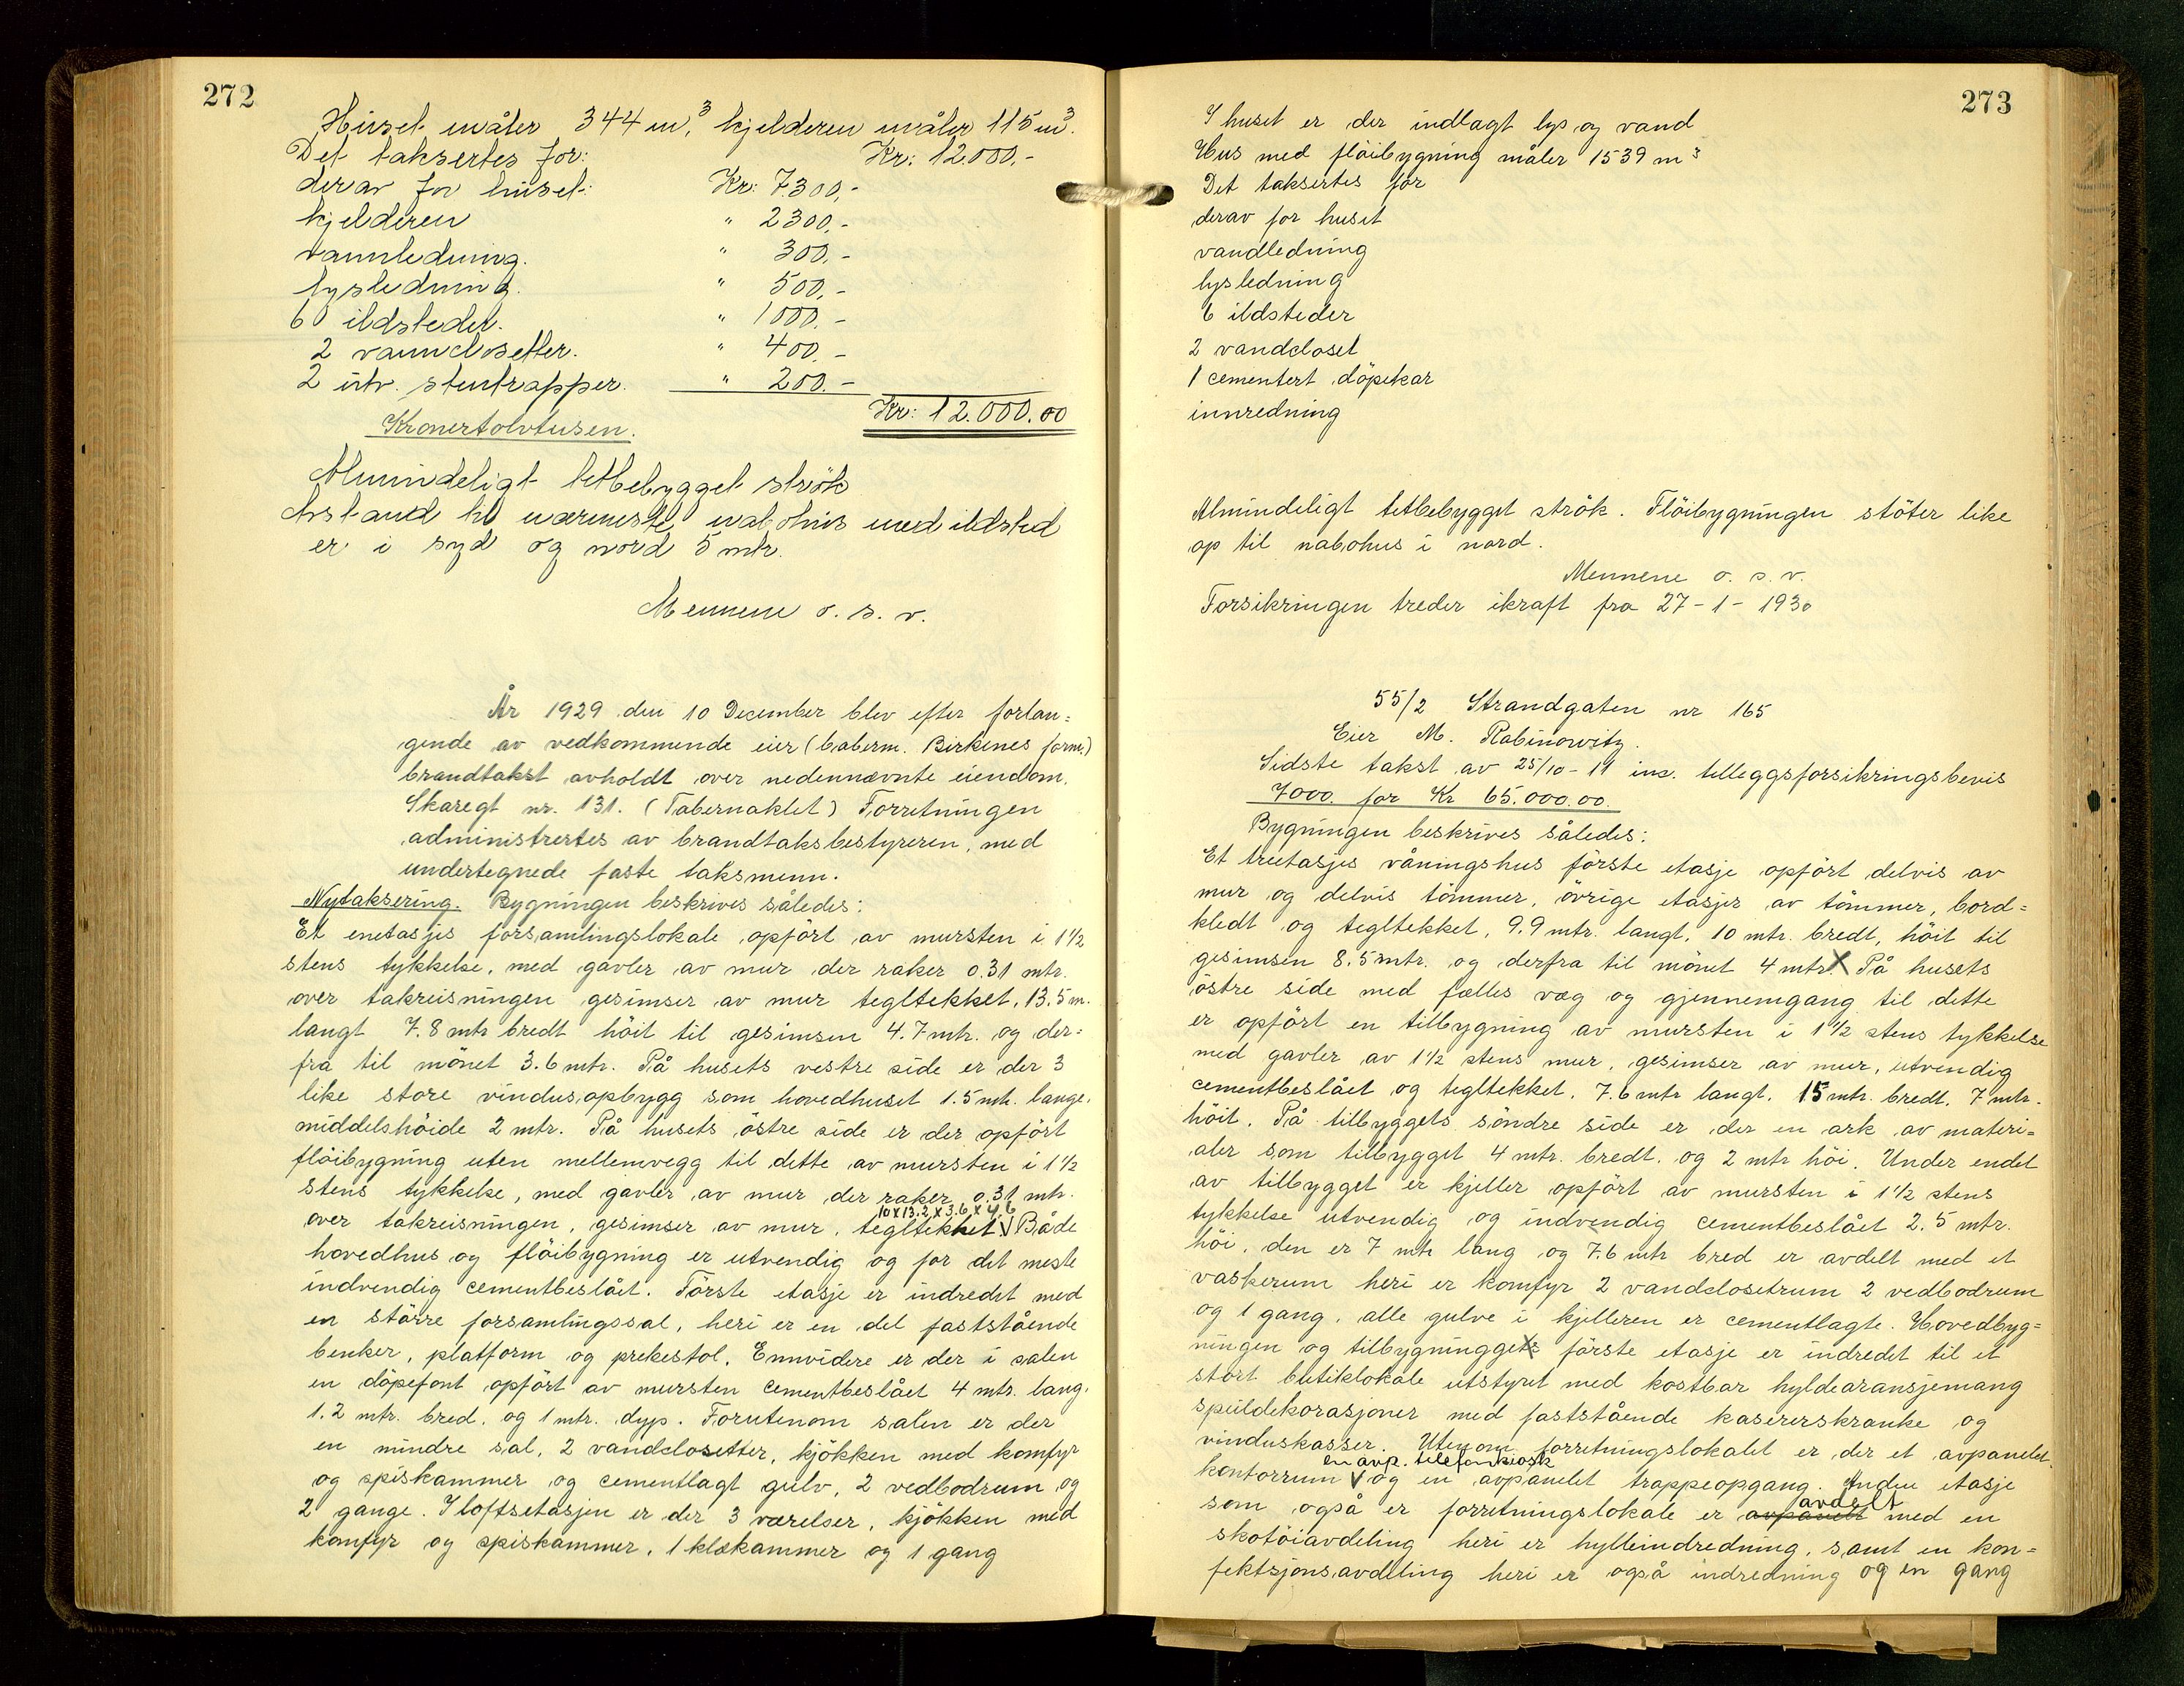 272
Huset måler 344 m³, kjelderen måler 115 m³.
Det taksertes for: Kr: 12.000,-
derav for huset: Kr: 7300,-
kjelderen " 2300,-
vannledning. " 300,-
lysledning. " 500,-
6 ildsteder. " 1000,-
2 vannclosetter. " 400,-
2 utv. stentrapper. " 200.-
Kr: 12.000.00
Kronertolvtusen.
Almindeligt tetbebygget strök
Avstand til nærmeste nabohus med ildsted
er i syd og nord 5 mtr.
Mennene o. s. v.
År 1929 den 10 December blev efter forlan=
gende av vedkommende eier (Caberm. Birkenes form.)
brandtakst avholdt over nedennævnte eiendom.
Skaregt nr. 131. (Tabernaklet) Forretningen
administrertes av brandtaksbestyreren, med
undertegnede faste taksmenn.
Nytaksering. Bygningen beskrives således:
Et enetasjes forsamlingslokale opfört av mursten i 1½
stens tykkelse, med gavler av mur der raker 0.31 mtr.
over takreisningen gesimser av mur tegltekket, 13.5 m.
langt 7.8 mtr bredt höit til gesimsen 4.7 mtr. og der=
fra til mönet 3.6 mtr. På husets vestre side er der 3
like store vindusopbygg som hovedhuset 1.5 mtr. lange,
middelshöide 2 mtr. På husets östre side er der opfört
flöibygning uten mellemvegg til dette av mursten i 1½
stens tykkelse, med gavler av mur der raker 0.31 mtr.
10 x 13.2 x 3.6 x 4.6
over takreisningen, gesimser av mur, tegltekket. V Både
hovedhus og flöibygning er utvendig og for det meste
indvendig cementbeslået. Förste etasje er indredet med
en större forsamlingssal, heri er en del faststående
benker, platform og prekestol. Ennvidere er der i salen
en döpefont opfört av mursten cementbeslået 4 mtr. lang,
1.2 mtr. bred. og 1 mtr. dyp. Forutenom salen er der
en mindre sal, 2 vandclosetter, kjökken med komfyr
og spiskammer og cementlagt gulv, 2 vedbodrum og
2 gange. I loftsetasjen er der 3 værelser, kjökken med
komfyr og spiskammer, 1 klækammer og 1 gang
273
I huset er der indlagt lys og vand
Hus med flöibygning måler 1539 m³
Det taksertes for
derav for huset
vandledning
lysledning
6 ildsteder
2 vandcloset
1 cementert döpekar
innredning
Almindeligt tetbebygget strök. Flöibygningen stöter like
op til nabohus i nord.
Mennene o. s. v.
Forsikringen treder ikraft fra 27-1-1930
55/2 Strandgaten nr 165
Eier M. Rabinowitz.
Sidste takst av 25/10-11 inc. tilleggsforsikringsbevis
7000. for Kr 65.000.00.
Bygningen beskrives således:
Et treetasjes våningshus förste etasje opfört delvis av
mur og delvis tömmer, övrige etasjer av tömmer, bord=
kledt og tegltekket, 9.9 mtr. langt. 10 mtr. bredt, höit til
gesimsen 8.5 mtr. og derfra til mönet 4 mtr. X På husets
östre side med fælles væg og gjennemgang til dette
er opfört en tilbygning av mursten i 1½ stens tykkelse
med gavler av 1½ stens mur, gesimser av mur, utvendig
cementbeslået og tegltekket. 7.6 mtr langt. 15 mtr. bredt. 7 mtr.
höit. På tilbyggets söndre side er der en ark av materi=
aler som tilbygget 4 mtr. bredt. og 2 mtr höi. Under endel
av tilbygget er kjeller opfört av mursten i 1½ stens
tykkelse utvendig og indvendig cementbeslået 2.5 mtr.
höi, den er 7 mtr lang og 7.6 mtr bred er avdelt med et
vaskerum heri er komfyr 2 vandclosetrum 2 vedbodrum
og 1 gang, alle gulve i kjelleren er cementlagte. Hovedbyg=
ningen og tilbygninggets förste etasje er indredet til et
stört butiklokale utstyret med kostbar hyldearansjemang
speildekorasjoner med faststående kasererskranke og
vinduskasser. Utenom forretningslokalet er der et avpanelet
en avp. telefonkiosk
kontorrum V og en avpanelet trappeopgang. Anden etasje
avdelt
som også er forretningslokale er avpanelt med en
skotöiavdeling heri er hylleindredning, samt en kon=
fektsjonsavdeling heri er også indredning og en gang